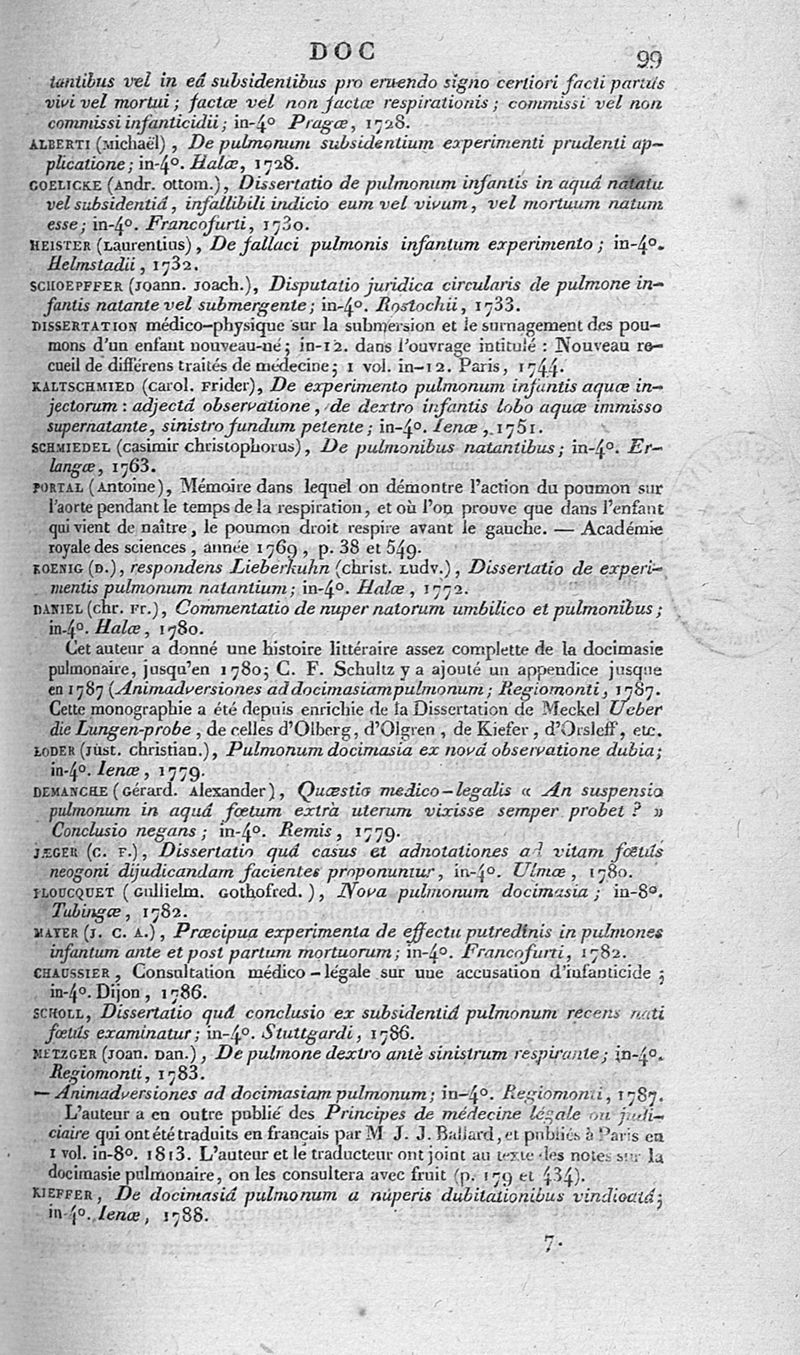 DOC
99
tantibus vel in eâ subsidentibus pro eruendo signo certiori facti partûs
vivi vel mortui ; factæ vel non factæ respirationis ; commissi vel non
commissi infanticidii ; in-4°. Pragæ, 1728.
ALBERTI (Michaël) , De pulmonum subsidentium experimenti prudenti ap-
plicatione ; in-4°. Halæ, 1728.
GOELICKE (Andr. ottom.), Dissertatio de pulmonum infantis in aquâ natatu
vel subsidentiâ, infallibili indicio eum vel vivum, vel mortuum natum
esse ; in-4°. Francofurti, 1730.
HEISTER (Laurentius), De fallaci pulmonis infantum experimento ; in-4°.
Helmstadii, 1732.
SCHOEPFFER (Joann. Joach.), Disputatio juridica circularis de pulmone in-
fantis natante vel submergente ; in-4°. Rostochii, 1733.
DISSERTATION médico-physique sur la submersion et le surnagement des pou-
mons d'un enfant nouveau-né ; in-12. dans l'ouvrage intitulé : Nouveau re-
cueil de différens traités de médecine ; 1 vol. in-12. Paris, 1744.
KALTSCHMIED (carol. Frider), De experimento pulmonum infantis aquæ in-
jectorum : adjectâ observatione, de dextro infantis lobo aquæ immisso
supernatante, sinistro fundum petente ; in-4°. Ienæ, 1751.
SCHMIEDEL (casimir christophorus), De pulmonibus natantibus ; in-4°. Er-
langæ, 1763.
PORTAL (Antoine), Mémoire dans lequel on démontre l'action du poumon sur
l'aorte pendant le temps de la respiration, et où l'on prouve que dans l'enfant
qui vient de naître, le poumon droit respire avant le gauche. — Académie
royale des sciences, année 1769, p. 38 et 549.
KOENIG (D.), respondens Lieberkuhn (christ. Ludv.), Dissertatio de experi-
mentis pulmonum natantium ; in-4°. Halæ, 1772.
DANIEL (chr. Fr.), Commentatio de nuper natorum umbilico et pulmonibus ;
in-4°. Halæ, 1780.
Cet auteur a donné une histoire littéraire assez complette de la docimasie
pulmonaire, jusqu'en 1780 ; C. F. Schultz y a ajouté un appendice jusque
en 1787 (Animadversiones ad docimasiam pulmonum ; Regiomonti, 1787.
Cette monographie a été depuis enrichie de la Dissertation de Meckel Ueber
die Lungen-probe, de celles d'Olberg, d'Olgren, de Kiefer, d'Orsleff, etc.
LODER (Just. christian.), Pulmonum docimasia ex novâ observatione dubia ;
in-4°. Ienæ, 1779.
DEMANCHE (Gérard. Alexander), Quæstio medico-legalis « An suspensio
pulmonum in aquâ fœtum extrà uterum vixisse semper probet ? »
Conclusio negans ; in-4°. Remis, 1779.
JÆGER (C. F.), Dissertatio quâ casus et adnotationes ad vitam fœtûs
neogoni dijudicandam facientes proponuntur, in-4°. Ulmæ, 1780.
PLOUCQUET (Gullielm. Gothofred.), Nova pulmonum docimasia ; in-8°.
Tubingæ, 1782.
MAYER (J. C. A.), Præcipua experimenta de effectu putredinis in pulmones
infantum ante et post partum mortuorum ; in-4°. Francofurti, 1782.
CHAUSSIER, Consultation médico-légale sur une accusation d'infanticide ;
in-4°. Dijon, 1786.
SCHOLL, Dissertatio quâ conclusio ex subsidentiâ pulmonum recens nati
fœtûs examinatur ; in-4°. Stuttgardi, 1786.
METZGER (Joan. Dan.), De pulmone dextro antè sinistrum respirante ; in-4°.
Regiomonti, 1783.
— Animadversiones ad docimasiam pulmonum ; in-4°. Regiomonti, 1787.
L'auteur a en outre publié des Principes de médecine légale ou judi-
ciaire qui ont été traduits en français par M J. J. Ballard, et publiés à Paris en
1 vol. in-8°. 1813. L'auteur et le traducteur ont joint au texte des notes sur la
docimasie pulmonaire, on les consultera avec fruit (p. 179 et 434).
KIEFFER, De docimasiâ pulmonum a nuperis dubitationibus vindicatâ ;
in-4°. Ienæ, 1788.
7.